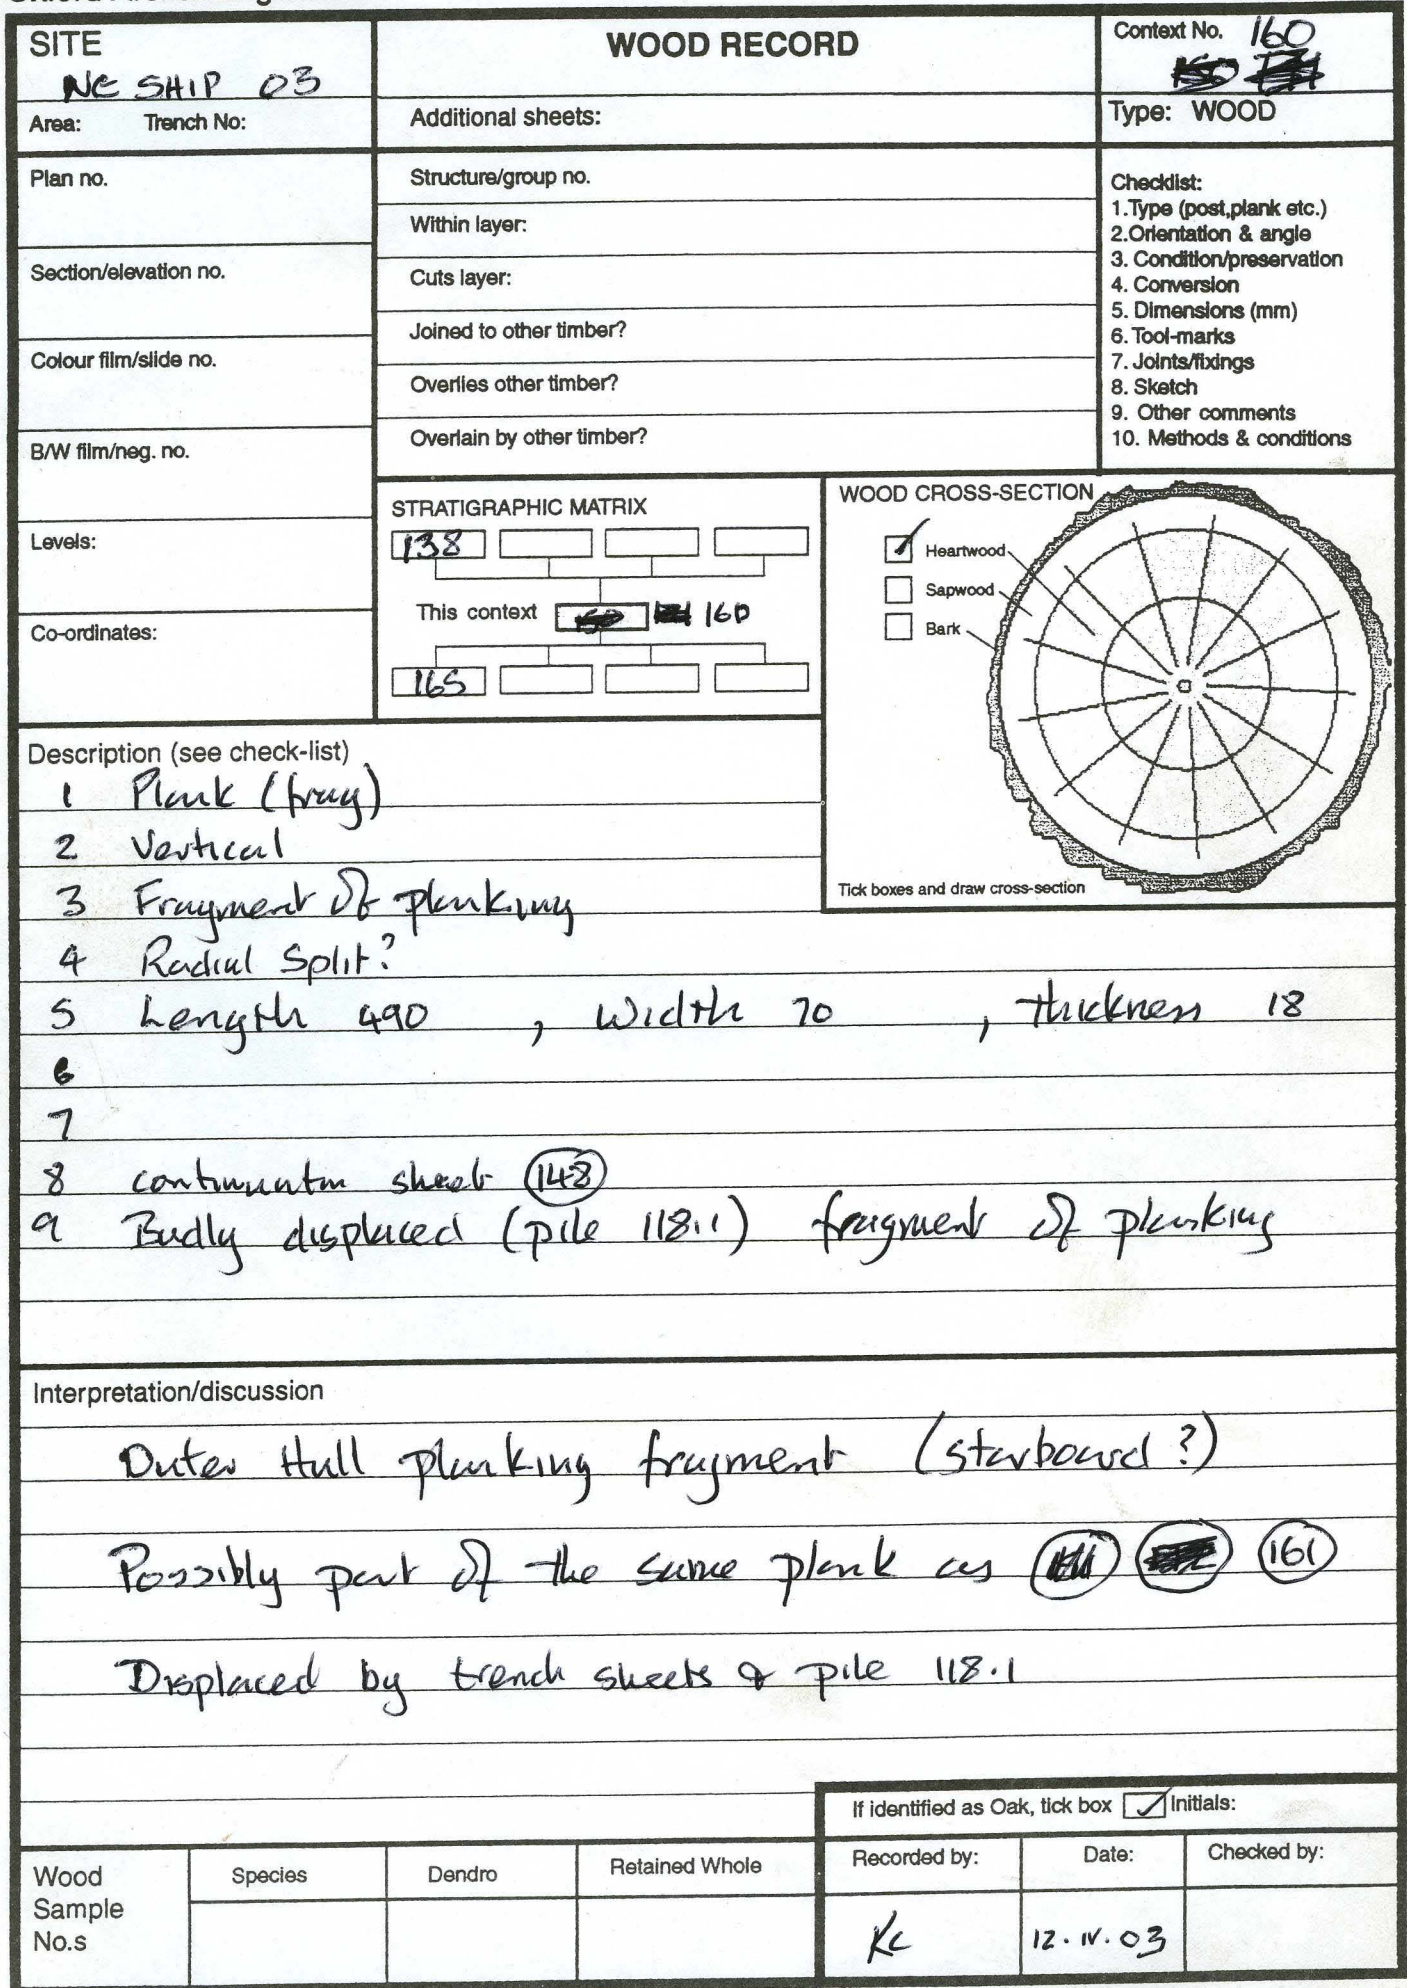 SITE
NE SHIP 03
WOOD RECORD
Context No. 160
Area: Trench No:
Additional sheets:
Type: WOOD
Plan no.
Section/elevation no.
Colour film/slide no.
B/W film/neg. no.
Levels:
Co-ordinates:
Structure/group no.
Within layer:
Cuts layer:
Joined to other timber?
Overlies other timber?
Overlain by other timber?
Checklist:
1.Type (post,plank etc.)
2.Orientation & angle
3. Condition/preservation
4. Conversion
5. Dimensions (mm)
6. Tool-marks
7. Joints/fixings
8. Sketch
9. Other comments
10. Methods & conditions
STRATIGRAPHIC MATRIX
138
This context 160
165
WOOD CROSS-SECTION
Heartwood
Sapwood
Bark
Tick boxes and draw cross-section
Description (see check-list)
1 Plank (frag)
2 Vertical
3 Fragment of planking
4 Radial Split?
5 Length 490 , Width 70 , thickness 18
6
7
8 continuation sheet 148
9 Badly displaced (pile 118.1) fragment of planking
Interpretation/discussion
Outer Hull planking fragment (starboard?)
Possibly part of the same plank as 161
Displaced by trench sheets & pile 118.1
If identified as Oak, tick box Initials:
Wood
Sample
No.s
Species
Dendro
Retained Whole
Recorded by:
Date:
Checked by:
KC
12.IV.03